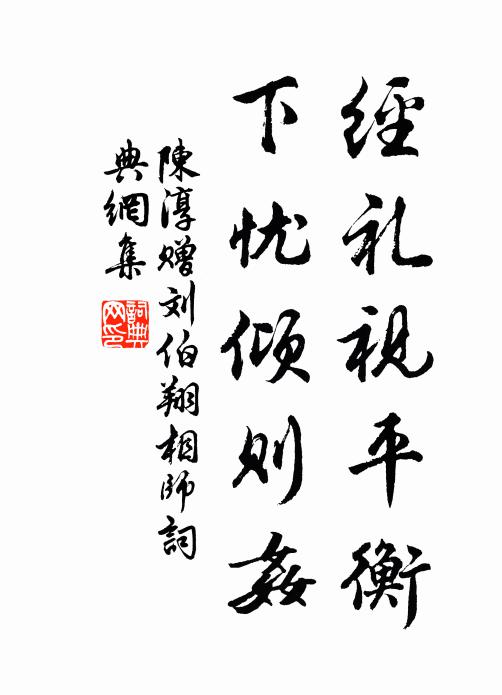 經礼視平衡
下忧倾则姦
陳淳赠刘伯翔相師詞
典網集
詞典
网印